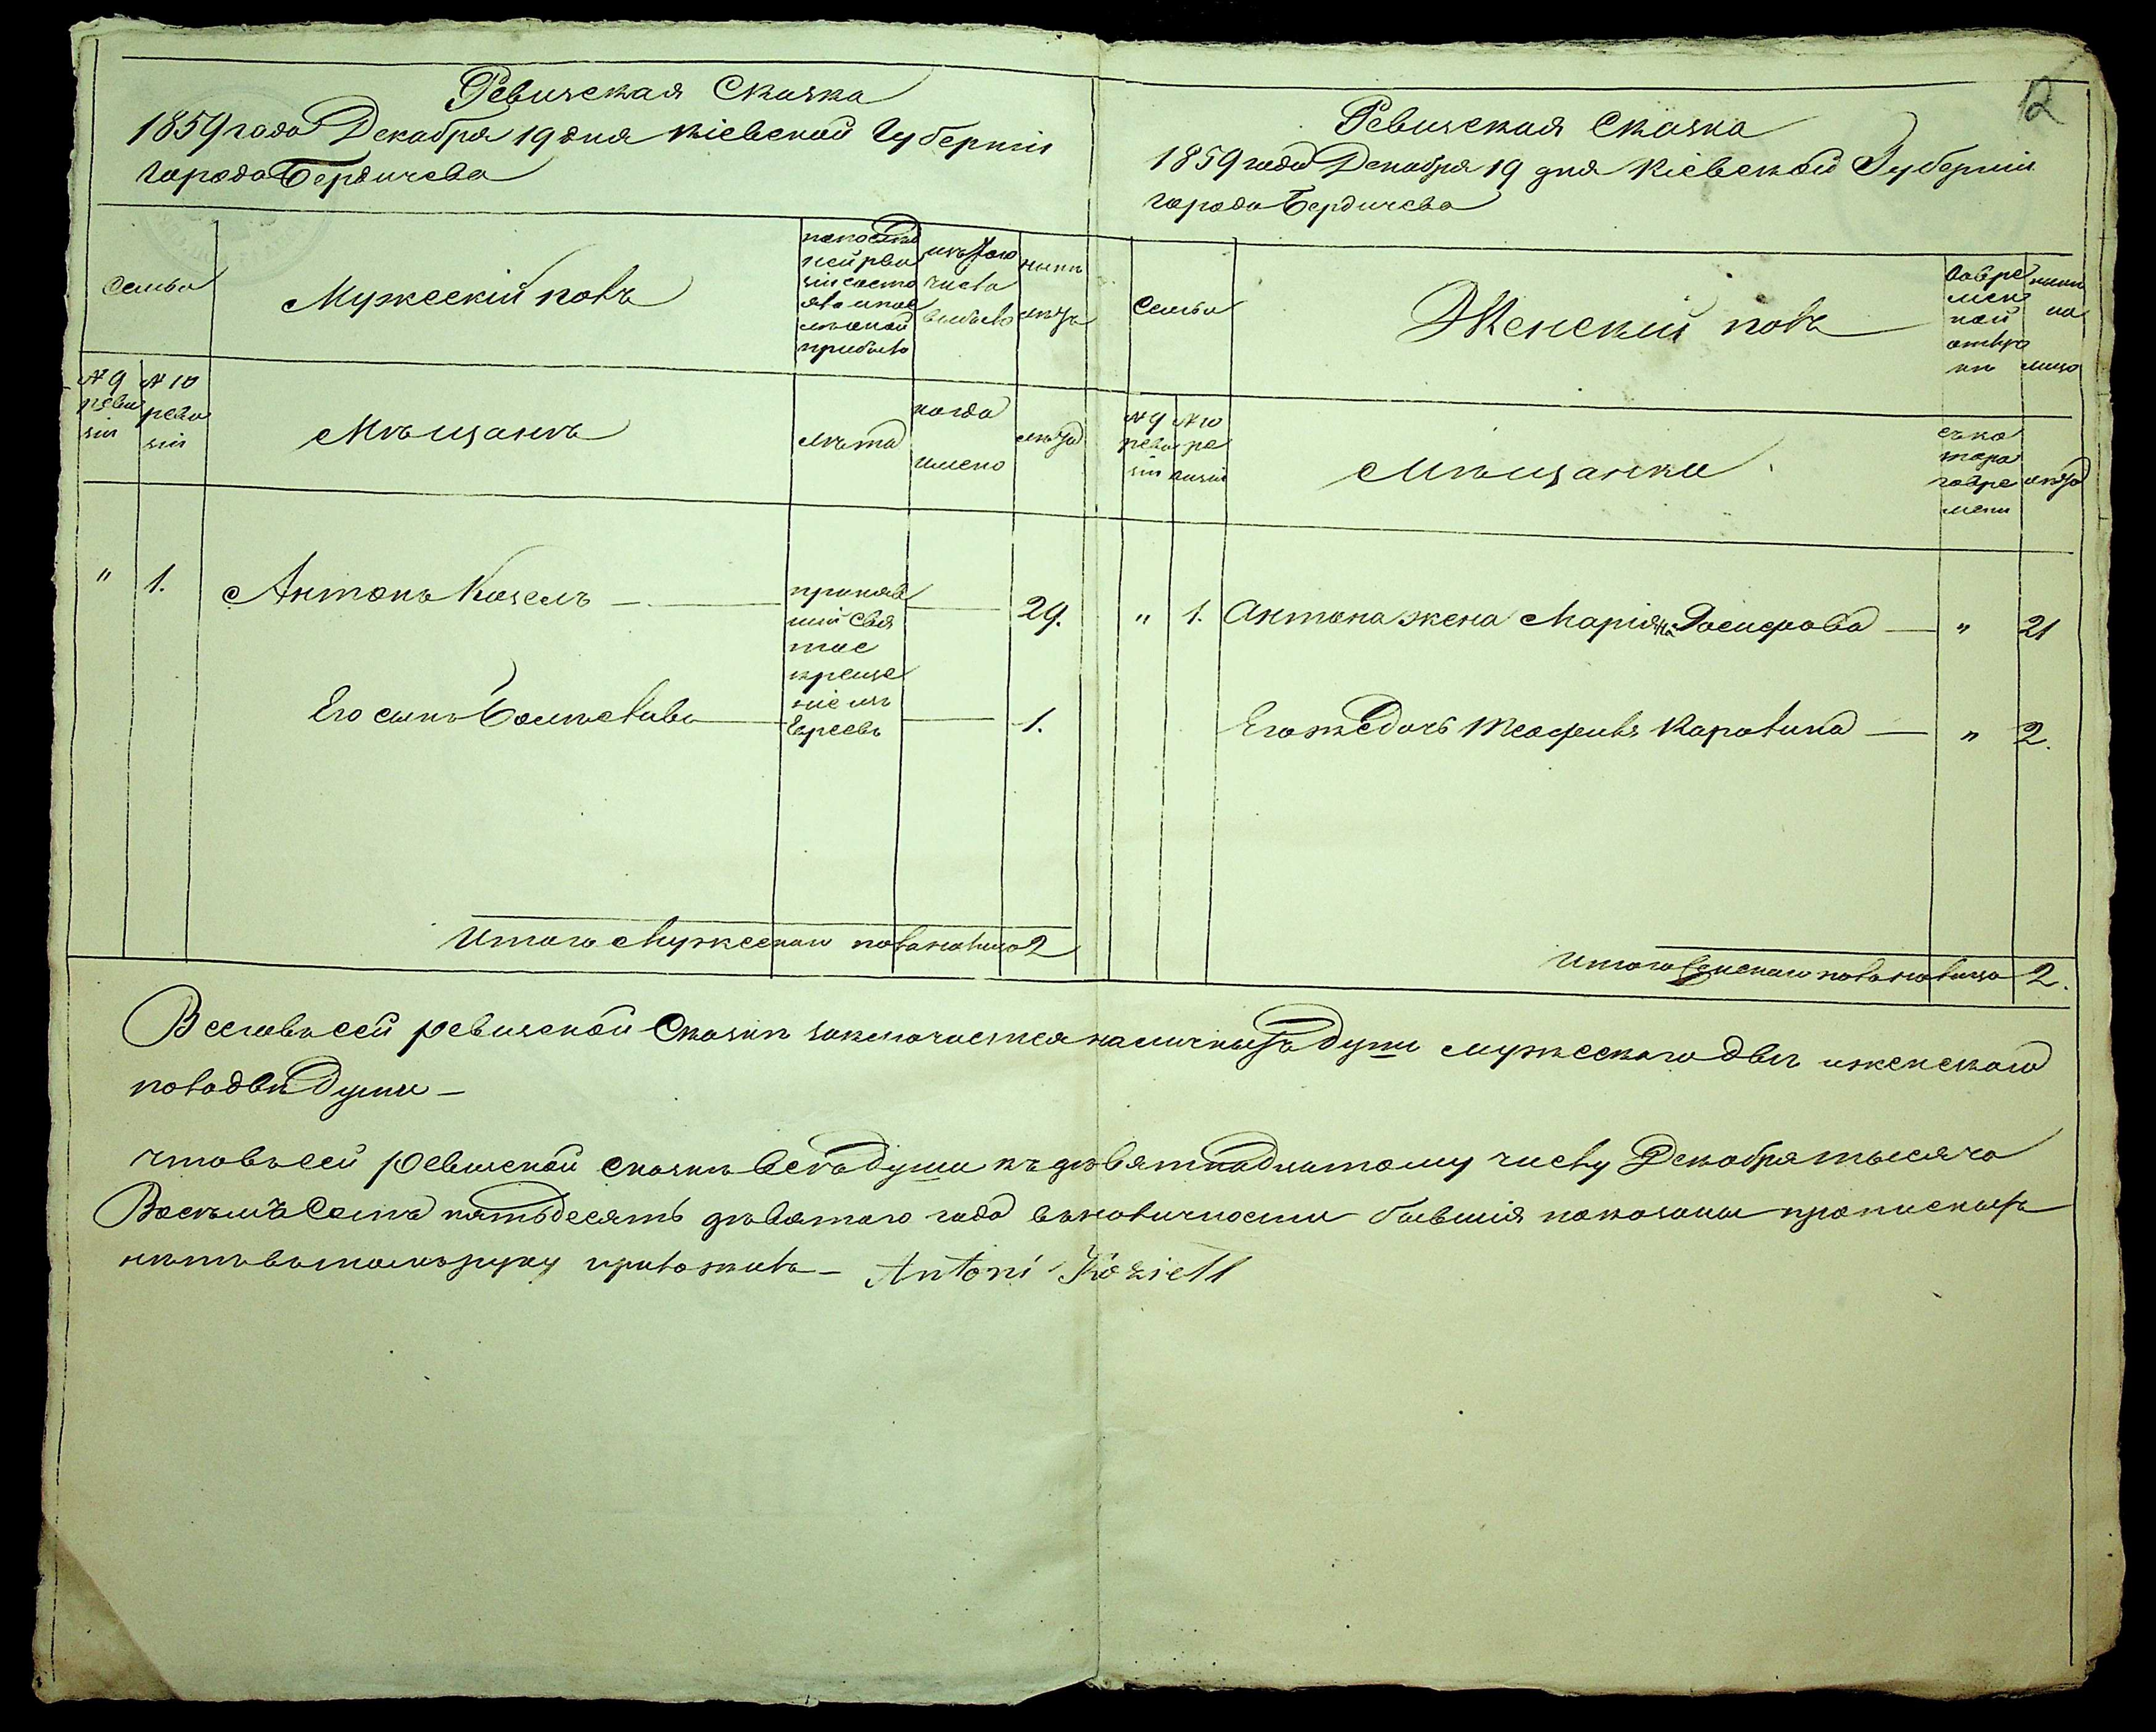 12
Ревизская Сказка
1859 года Декабря 19 дня Кіевской Губерніи
города Бердичева
Семьи
Мужескій полъ
по последней ревизіи состояло и после оной прибыло
изъ того числа выбыло
нынѣ лицъ
№ 9 ревизіи
№ 10 ревизіи
Мѣщанъ
лѣта
когда имено
лѣта
" 1. Антонъ Козелъ — принявшій Святое крещеніе изъ Евреевъ — 29.
Его сынъ Болѣславъ — 1.
Итого Мужескаго пола налицо 2
Ревизская Сказка
1859 года Декабря 19 дня Кіевской Губерніи
города Бердичева
Семьи
Женскій полъ
во временной отлучкѣ
нынѣ на лицо
№ 9 ревизіи
№ 10 ревизіи
Мѣщанки
съ котораго времени
лѣта
" 1. Антона жена Маріяна Іосифова — " 21
Его же дочь Теофиля Каролина — " 2.
Итого Женскаго пола налицо 2.
Всего въ сей ревизской Сказкѣ заключается наличныхъ душъ мужескаго двѣ и женскаго
пола двѣ души —
что въ сей ревизской сказкѣ всѣ души къ девятнадцатому числу Декабря тысяча
Восемъ Сотъ пятьдесятъ девятаго года въ наличности бывшія показаны прописныхъ
нѣтъ въ томъ руку приложилъ — Antoni Koziell